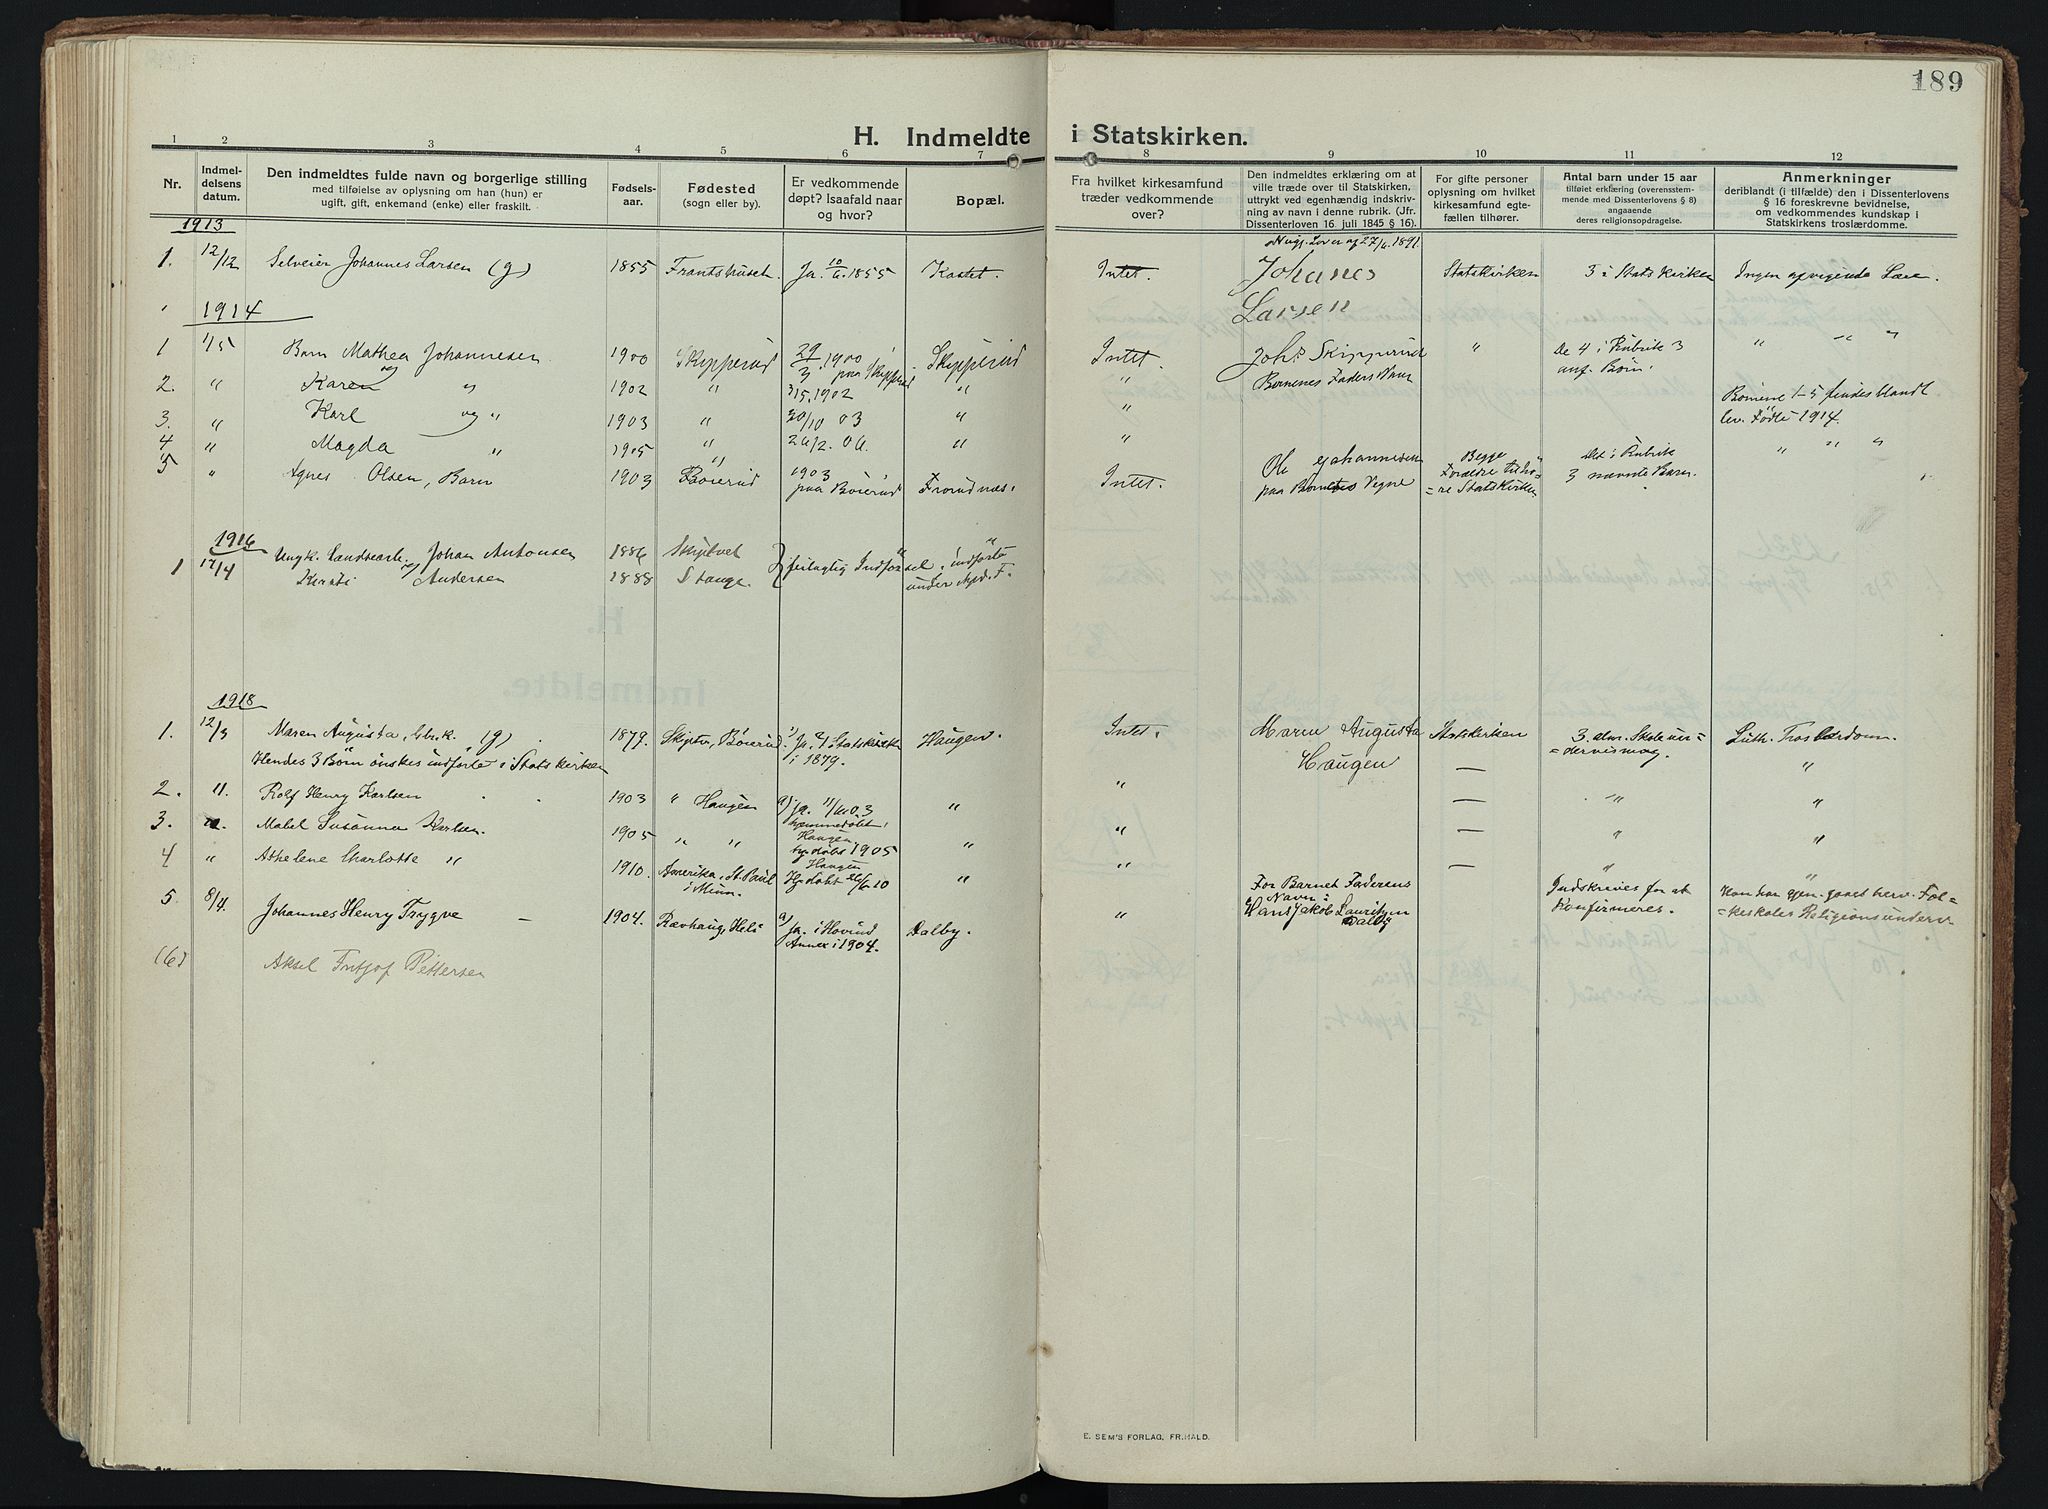 189
H. Indmeldte i Statskirken.
1 2 3 4 5 6 7 8 9 10 11 12
Nr.
Indmel-
delsens
datum.
Den indmeldtes fulde navn og borgerlige stilling
med tilføielse av oplysning om han (hun) er
ugift, gift, enkemand (enke) eller fraskilt.
Fødsels-
aar.
Fødested
(sogn eller by).
Er vedkommende
døpt? Isaafald naar
og hvor?
Bopæl.
Fra hvilket kirkesamfund
træder vedkommende
over?
Den indmeldtes erklæring om at
ville træde over til Statskirken,
uttrykt ved egenhændig indskriv-
ning av navn i denne rubrik. (Jfr.
Dissenterloven 16. juli 1845 § 16).
For gifte personer
oplysning om hvilket
kirkesamfund egte-
fællen tilhører.
Antal barn under 15 aar
tilføiet erklæring (overensstem-
mende med Dissenterlovens § 8)
angaaende
deres religionsopdragelse.
Anmerkninger
deriblandt (i tilfælde) den i Dissenterlovens
§ 16 foreskrevne bevidnelse,
om vedkommendes kundskap i
Statskirkens troslærdomme.
1913
1. 12/12 Selveier Johannes Larsen (g) 1855 Frantshuset. Ja. 10/6 1855 Kastet. Intet. Johanes Larsen Statskirken 3 i Statskirken Ingen afvigende Lære.
1914
1 1/5 Barn Mathea Johannesen 1900 Skipperud 29/3 1900 paa Skipperud Skipperud Intet. Joh.s Skipperud " De 4 i Rubrik 3 anf. Børn. " " "
2. " Karen " 1902 " 3/5.1902 " " Børnenes Faders Navn
3. " Karl og " 1903 " 20/10 03 " " Børnene 1-5 findes blandt lev. Fødte 1914.
4 " Magda " 1905 " 26/2. 06 " "
5 " Agnes Olsen, Barn 1903 Bøierud 1903 paa Bøierud Frorudnæs. Intet. Ole Johannesen paa Barnets Vegne Begge Forældre tilhø= =re Statskirken Det i Rubrik 3 nævnte Barn. " " "
1916
1 17/4 Ungk. Landsearb. Johan Antonsen 1886 Skiptvet feilagtig Indførsel, indførte
og Kirsti Andersen 1888 Stange under F.
1918
1. 12/3 Maren Augusta, (g) 1879. Skiptv, Bøierud. Ja, i Statskirken i 1879. Haugen. Intet. Maren Augusta Haugen Statskirken 3. alm. Skoleun= =dervisning. Luth. Troslærdom.
Hendes 3 Børn ønskes indførte i Statskirken
2. ". Rolf Henry Karlsen 1903 " Haugen ja. 11/6 03 hjemmedøbt. " " — " "
3. ". Mabel Susanna Karlsen. 1905 " " Haugen hj. døbt 1905 " " — " "
4 " Athelene Charlotte " 1910. Amerika, St. Paul i Minn. Haugen Hj. døbt 10 " " — "
5 8/4. Johannes Henry Trygve — 1904. Rævhaug, Hels ja. i Hovind Annex i 1904. Dalby. " For Barnet Faderens Navn: Hans Jakob Lauritzen Dalby Indskrives for at Konfirmeres. Han har gjen.gaaet herv. Fol= =keskoles Religionsunderv.
(6) Aksel Fritjof Pettersen
E. SEM'S FORLAG, FR.HALD.